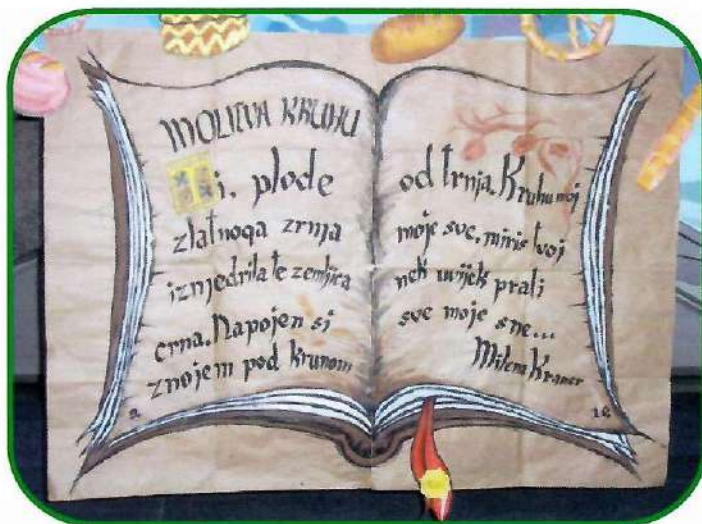 MOLITVA KRUHU
Ti. plode
zlatnoga zrnja
iznjedrila te zemljica
crna. Napojen si
znojem pod krunom
9
od trnja. Kruhu moj
moje sve. miris tvoj
nek uvijek prati
sve moje sne...
Milena Kraner
10